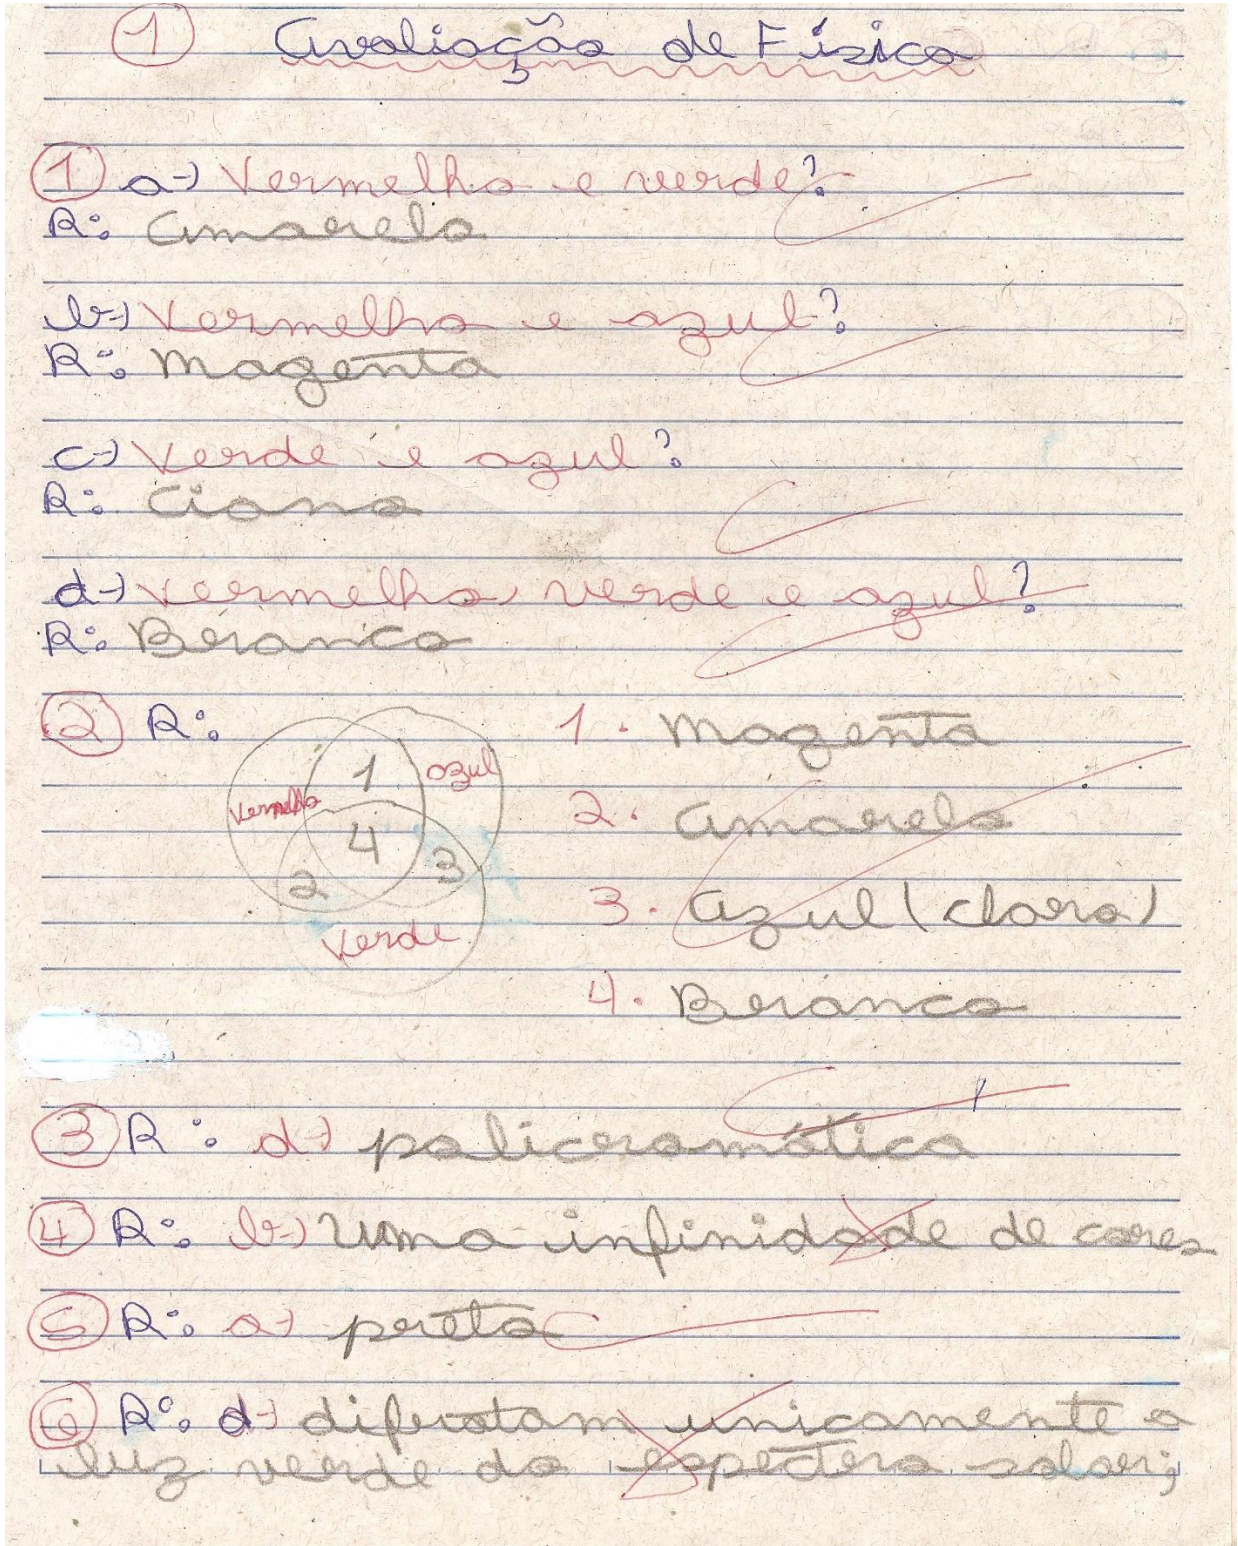 1 Avaliação de Física
1 a-) Vermelho e verde?
R: Amarelo
b-) Vermelho e azul?
R: Magenta
c-) Verde e azul?
R: Ciano
d-) Vermelho, verde e azul?
R: Branco
2 R:
1
azul
vermelho
4
2
3
verde
1. Magenta
2. Amarelo
3. Azul (claro)
4. Branco
3 R: d-) policromática
4 R: b-) Uma infinidade de cores
5 R: a-) preto
6 R: d-) difratam unicamente a
luz verde do espectro solar;